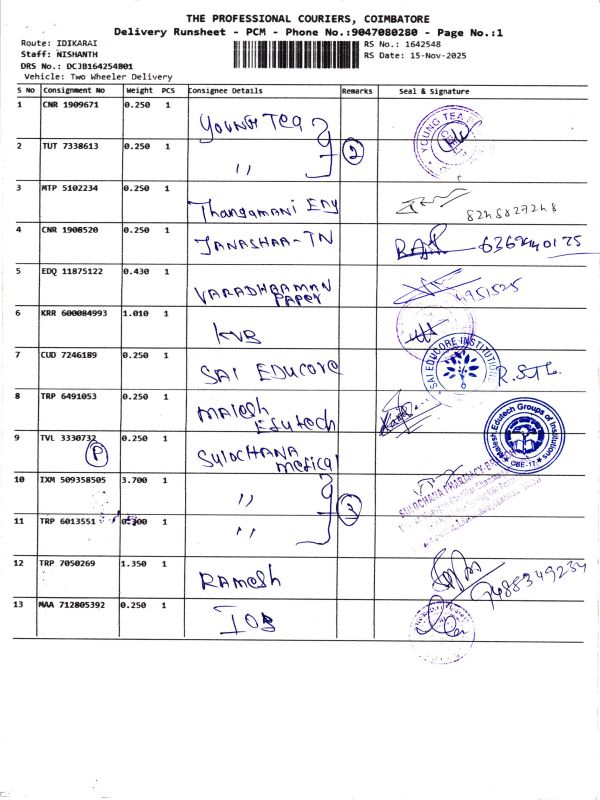 THE PROFESSIONAL COURIERS, COIMBATORE
Delivery Runsheet - PCM - Phone No.:9047080280 - Page No.:1
Route: IDIKARAI
Staff: NISHANTH
DRS No.: DCJB164254801
Vehicle: Two Wheeler Delivery
RS No.: 1642548
RS Date: 15-Nov-2025
S No Consignment No Weight PCS Consignee Details Remarks Seal & Signature
1 CNR 1909671 0.250 1 Young Tea YOUNG TEA
2 TUT 7338613 0.250 1 " 2
3 MTP 5102234 0.250 1 Thangamani Eny 8248827248
4 CNR 1908520 0.250 1 JANASHAA-TN
5 EDQ 11875122 0.430 1 VARADHRAMAN
PAPER
6 KRR 600084993 1.010 1 KVB
7 CUD 7246189 0.250 1 SAI EDUCORE SAI EDUCORE INSTITUTION
8 TRP 6491053 0.250 1 MALESH
Edutech Malesh Edutech Groups of Institutions
CBE-17
9 TVL 3330732 0.250 1 SULOCHANA
Medical
P
SULOCHANA PHARMACY
10 IXM 509358505 3.700 1 "
3
11 TRP 6013551 0.300 1 "
12 TRP 7050269 1.350 1 RAMESH 7488349234
13 MAA 712805392 0.250 1 IOB